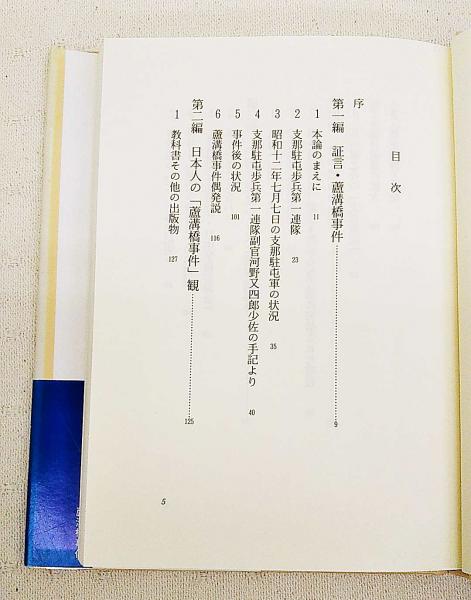 目次
序
第一編 証言・蘆溝橋事件……………………9
1 本論のまえに 11
2 支那駐屯歩兵第一連隊 23
3 昭和十二年七月七日の支那駐屯軍の状況 35
4 支那駐屯歩兵第一連隊副官河野又四郎少佐の手記より 40
5 事件後の状況 101
6 蘆溝橋事件偶発説 116
第二編 日本人の「蘆溝橋事件」観……………………125
1 教科書その他の出版物 127
5